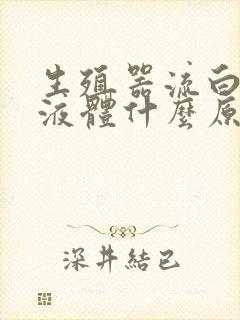 生殖器流白
液體什麼原
深井結已